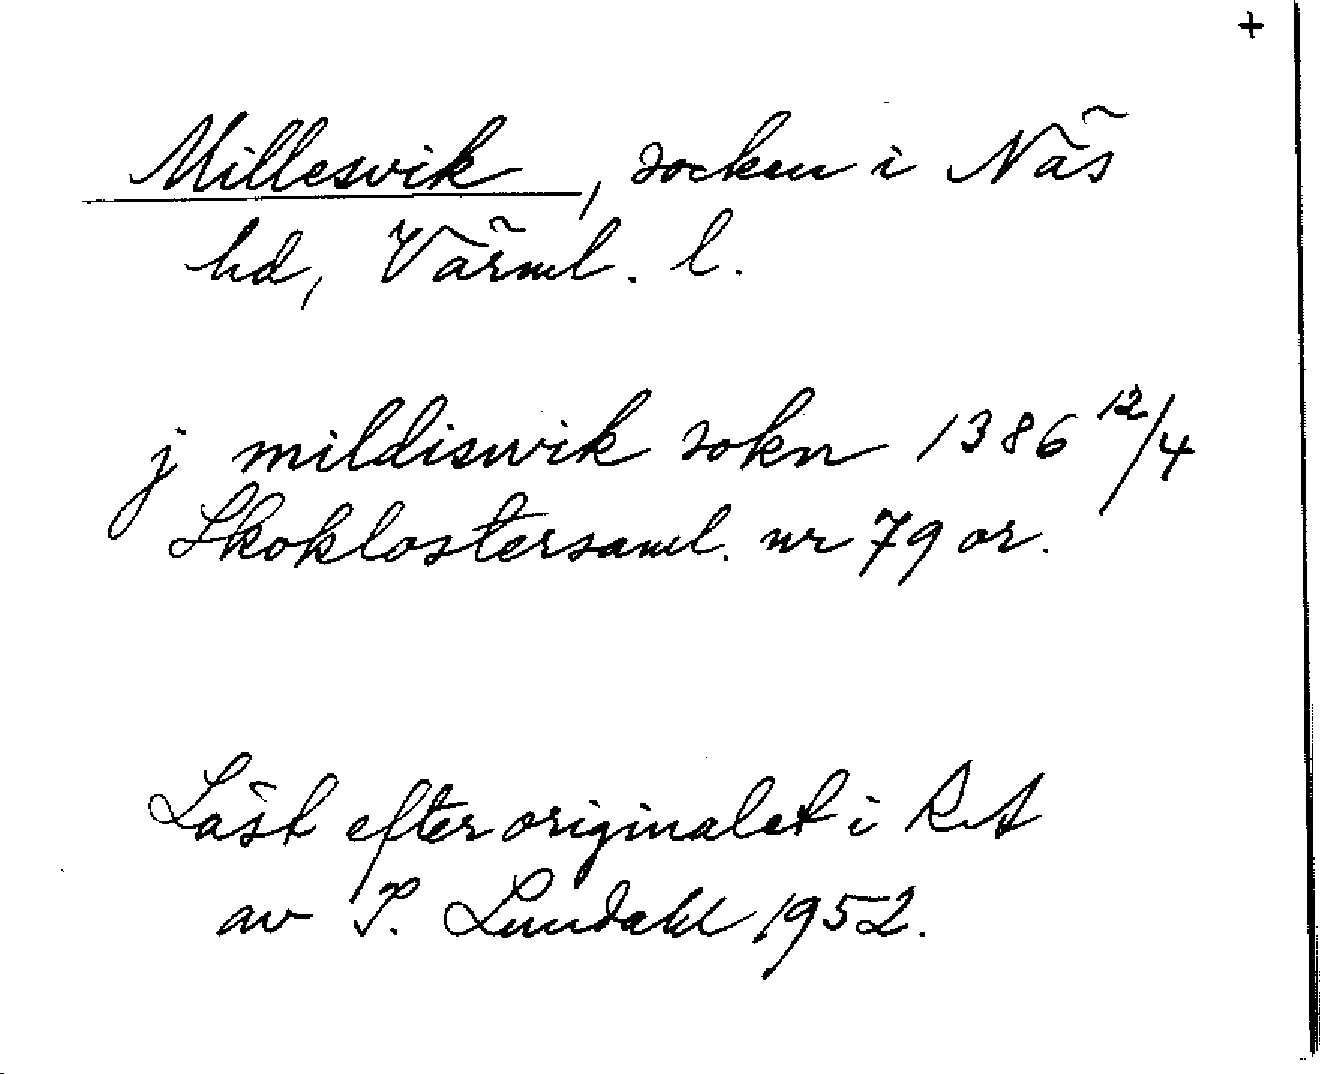 +
Millesvik, socken i Näs
hd, Värml. l.
j mildiswik sokn 1386 12/4
Skoklostersaml. nr 79 or.
Läst efter originalet i RA
av I. Lundahl 1952.